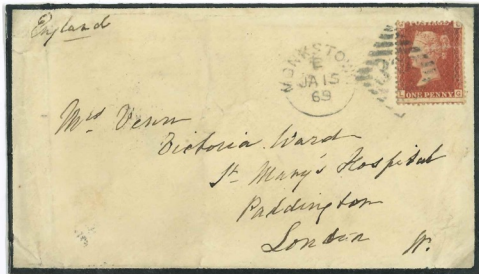 England
MONKSTOWN
E
JA 15
69
ONE PENNY
L G
Mrs Venn
Victoria Ward
St Mary's Hospital
Paddington
London W.